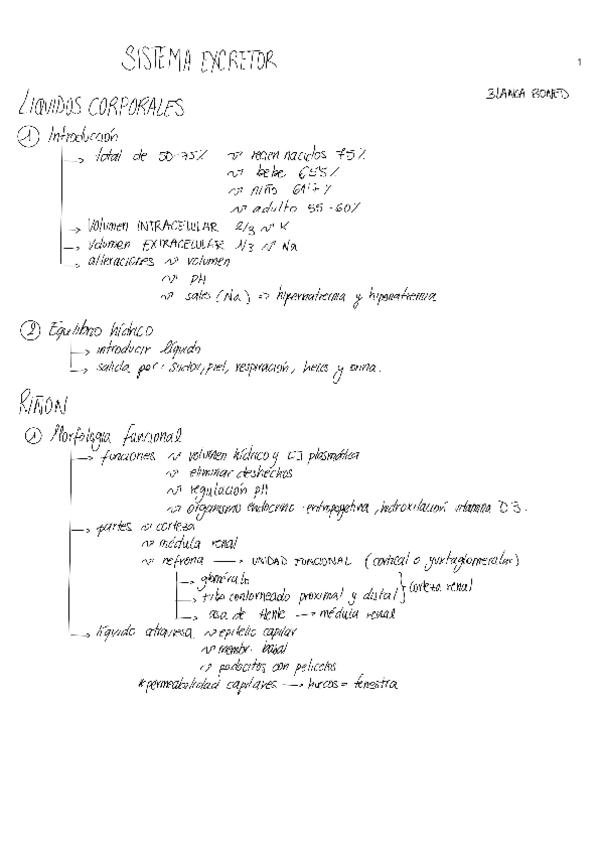 SISTEMA EXCRETOR
1
LIQUIDOS CORPORALES
BLANCA
① Introducción
→ total de 50-75% ~ recien nacidos 75%
~ bebe 65%
~ niño 61%
~ adulto 55-60%
→ Volumen INTRACELULAR 2/3 ~ K
→ Volumen EXTRACELULAR 1/3 ~ Na
→ alteraciones ~ volumen
~ pH
~ sales (Na) => hipernatremia y hiponatremia
② Equilibrio hídrico
→ introducir líquido
→ salida por: sudor, piel, respiración, heces y orina.
RIÑON
① Morfología funcional
→ funciones ~ volumen hídrico y [] plasmática
~ eliminar deshechos
~ regulación pH
~ organismo endocrino: hidroxilación vitamina D3.
→ partes ~ corteza
~ médula renal
~ nefrona → UNIDAD FUNCIONAL (cortical o yuxtaglomerular)
→ glomérulo
→ tubo contorneado proximal y distal } corteza renal
→ asa de Henle → médula renal
→ líquido atraviesa ~ epitelio capilar
~ membr. basal
~ podocitos con pedicelos
*permeabilidad capilares → huecos = fenestra